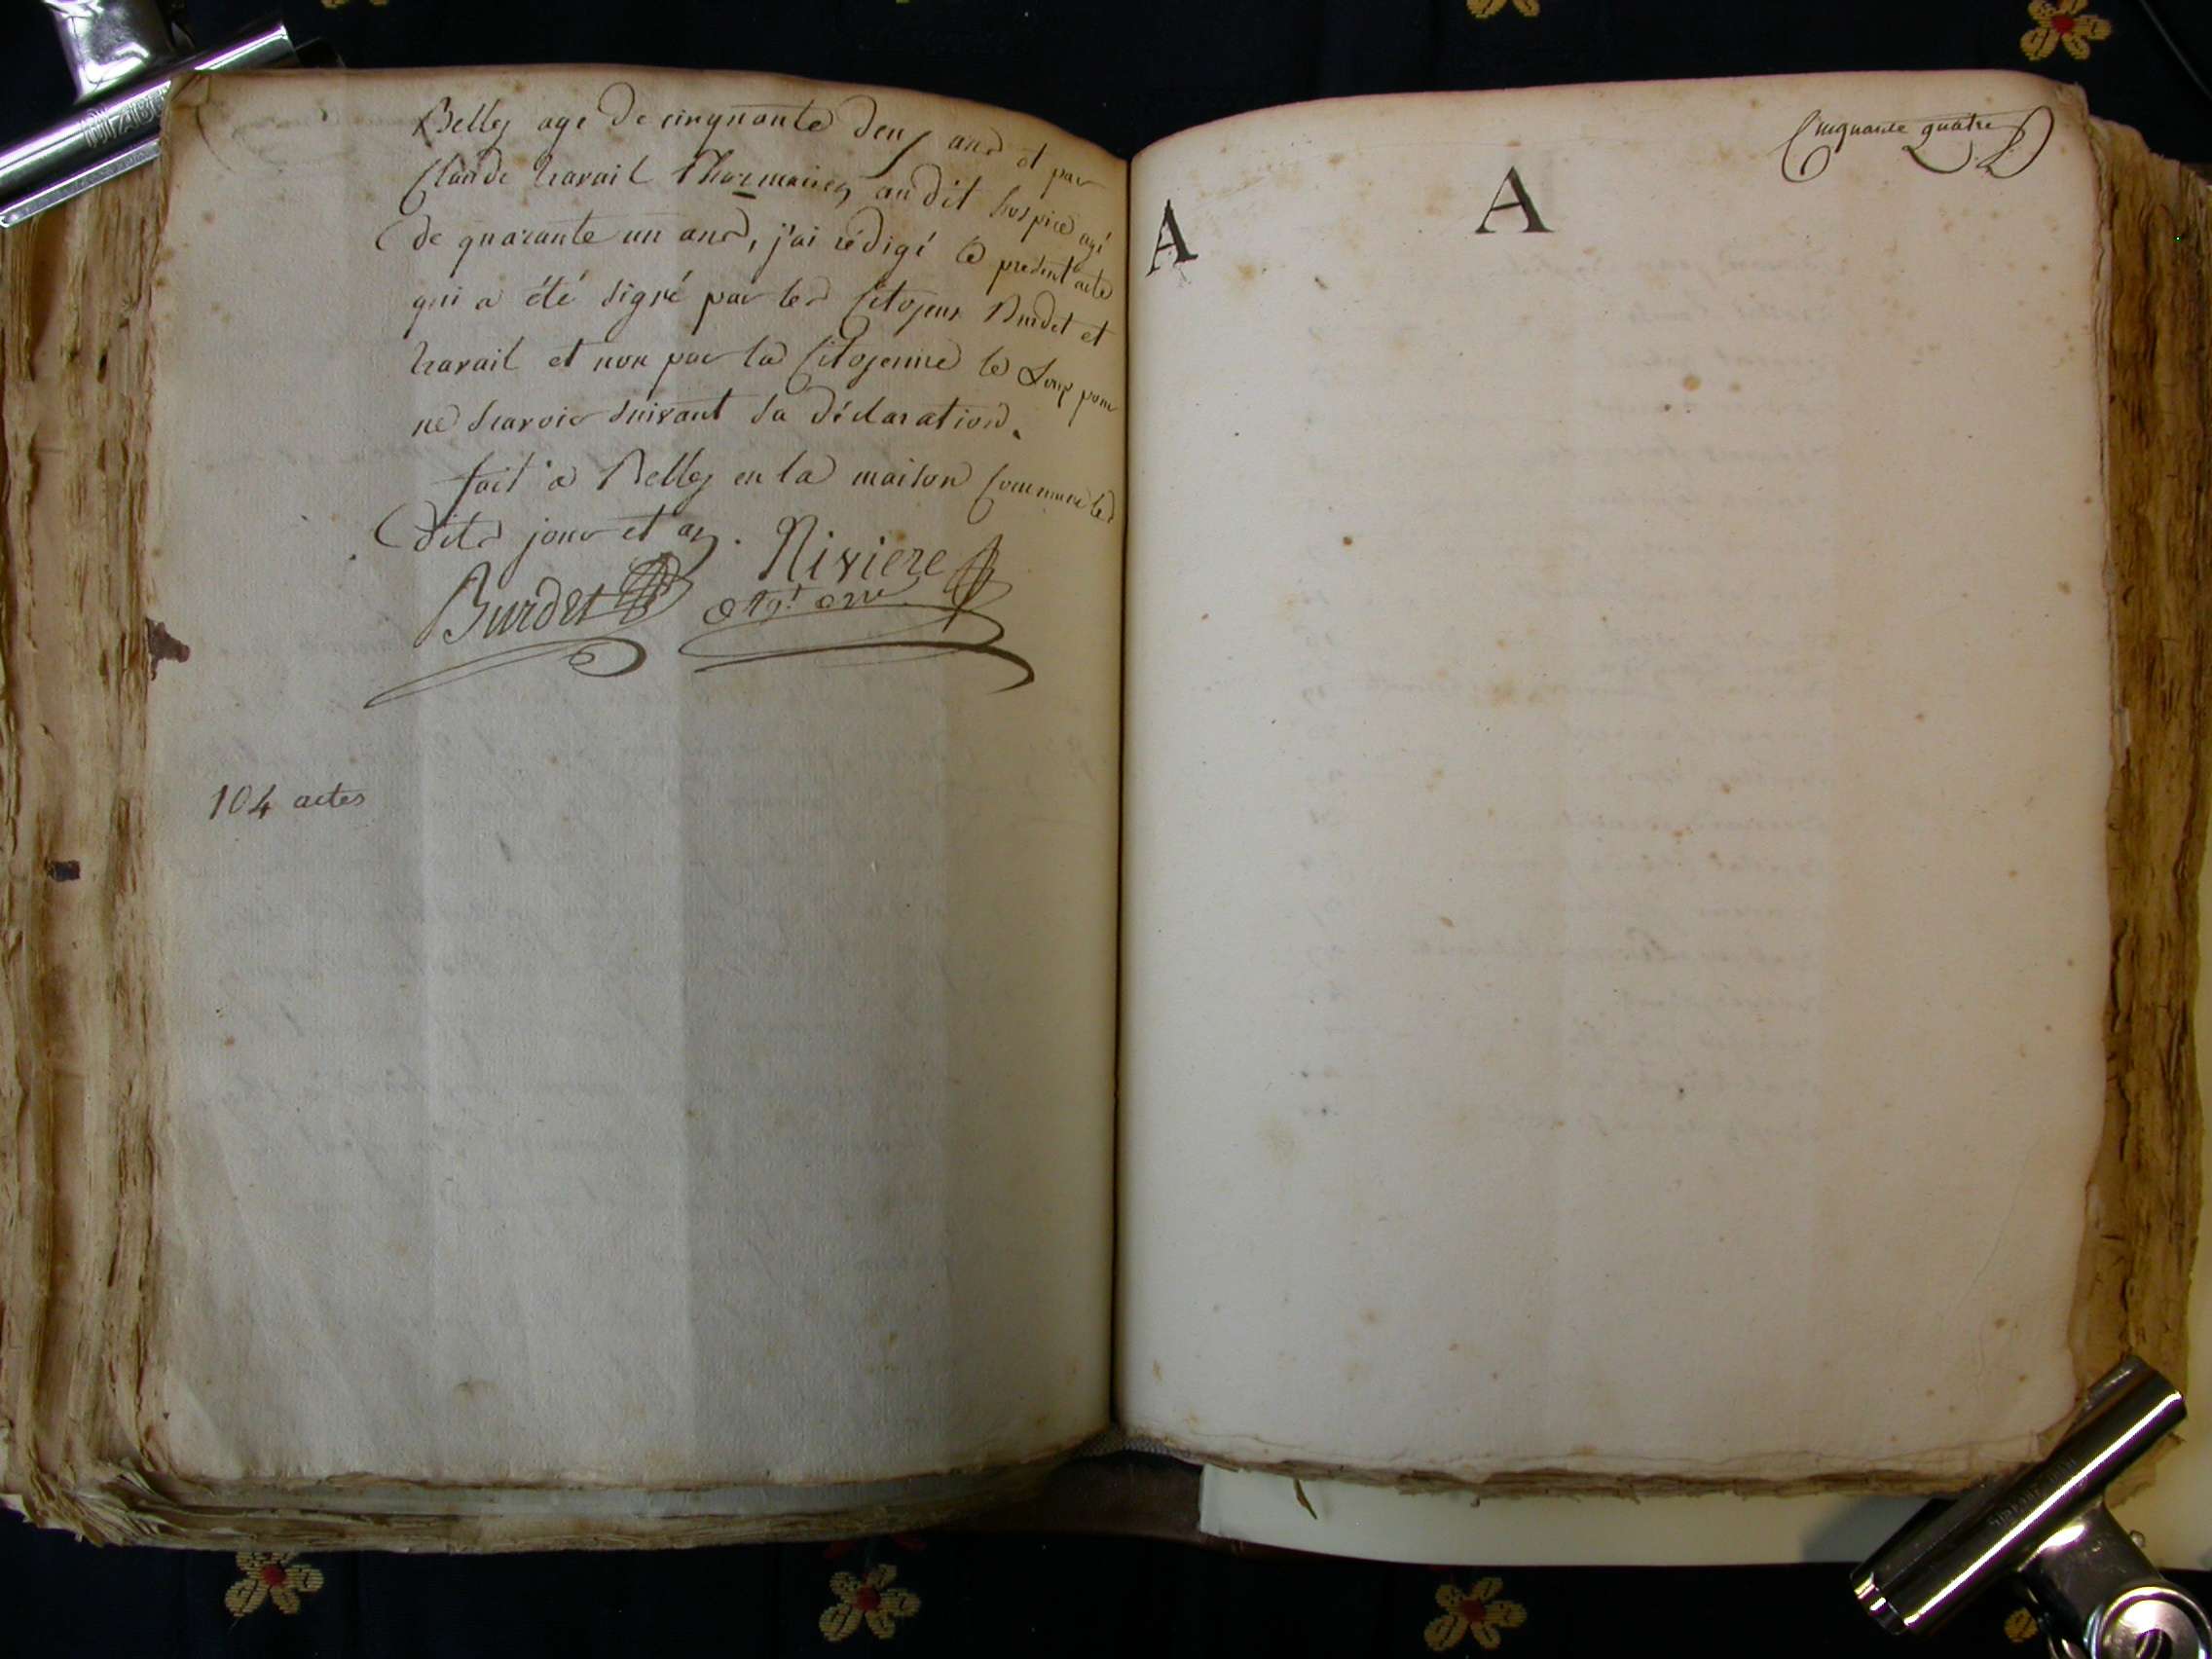 Belley agé de cinquante deux ans et par
Claude travail Pharmacien au dit hospice agé
de quarante un ans, j'ai rédigé le présent acte
qui a été signé par les Citoyens Burdet et
travail et non par la Citoyenne le Loup pour
ne scavoir suivant sa déclaration.
fait a Belley en la maison Commune les
dits jour et an.
Riviere
Burdet
104 actes
Cinquante quatre
A
A